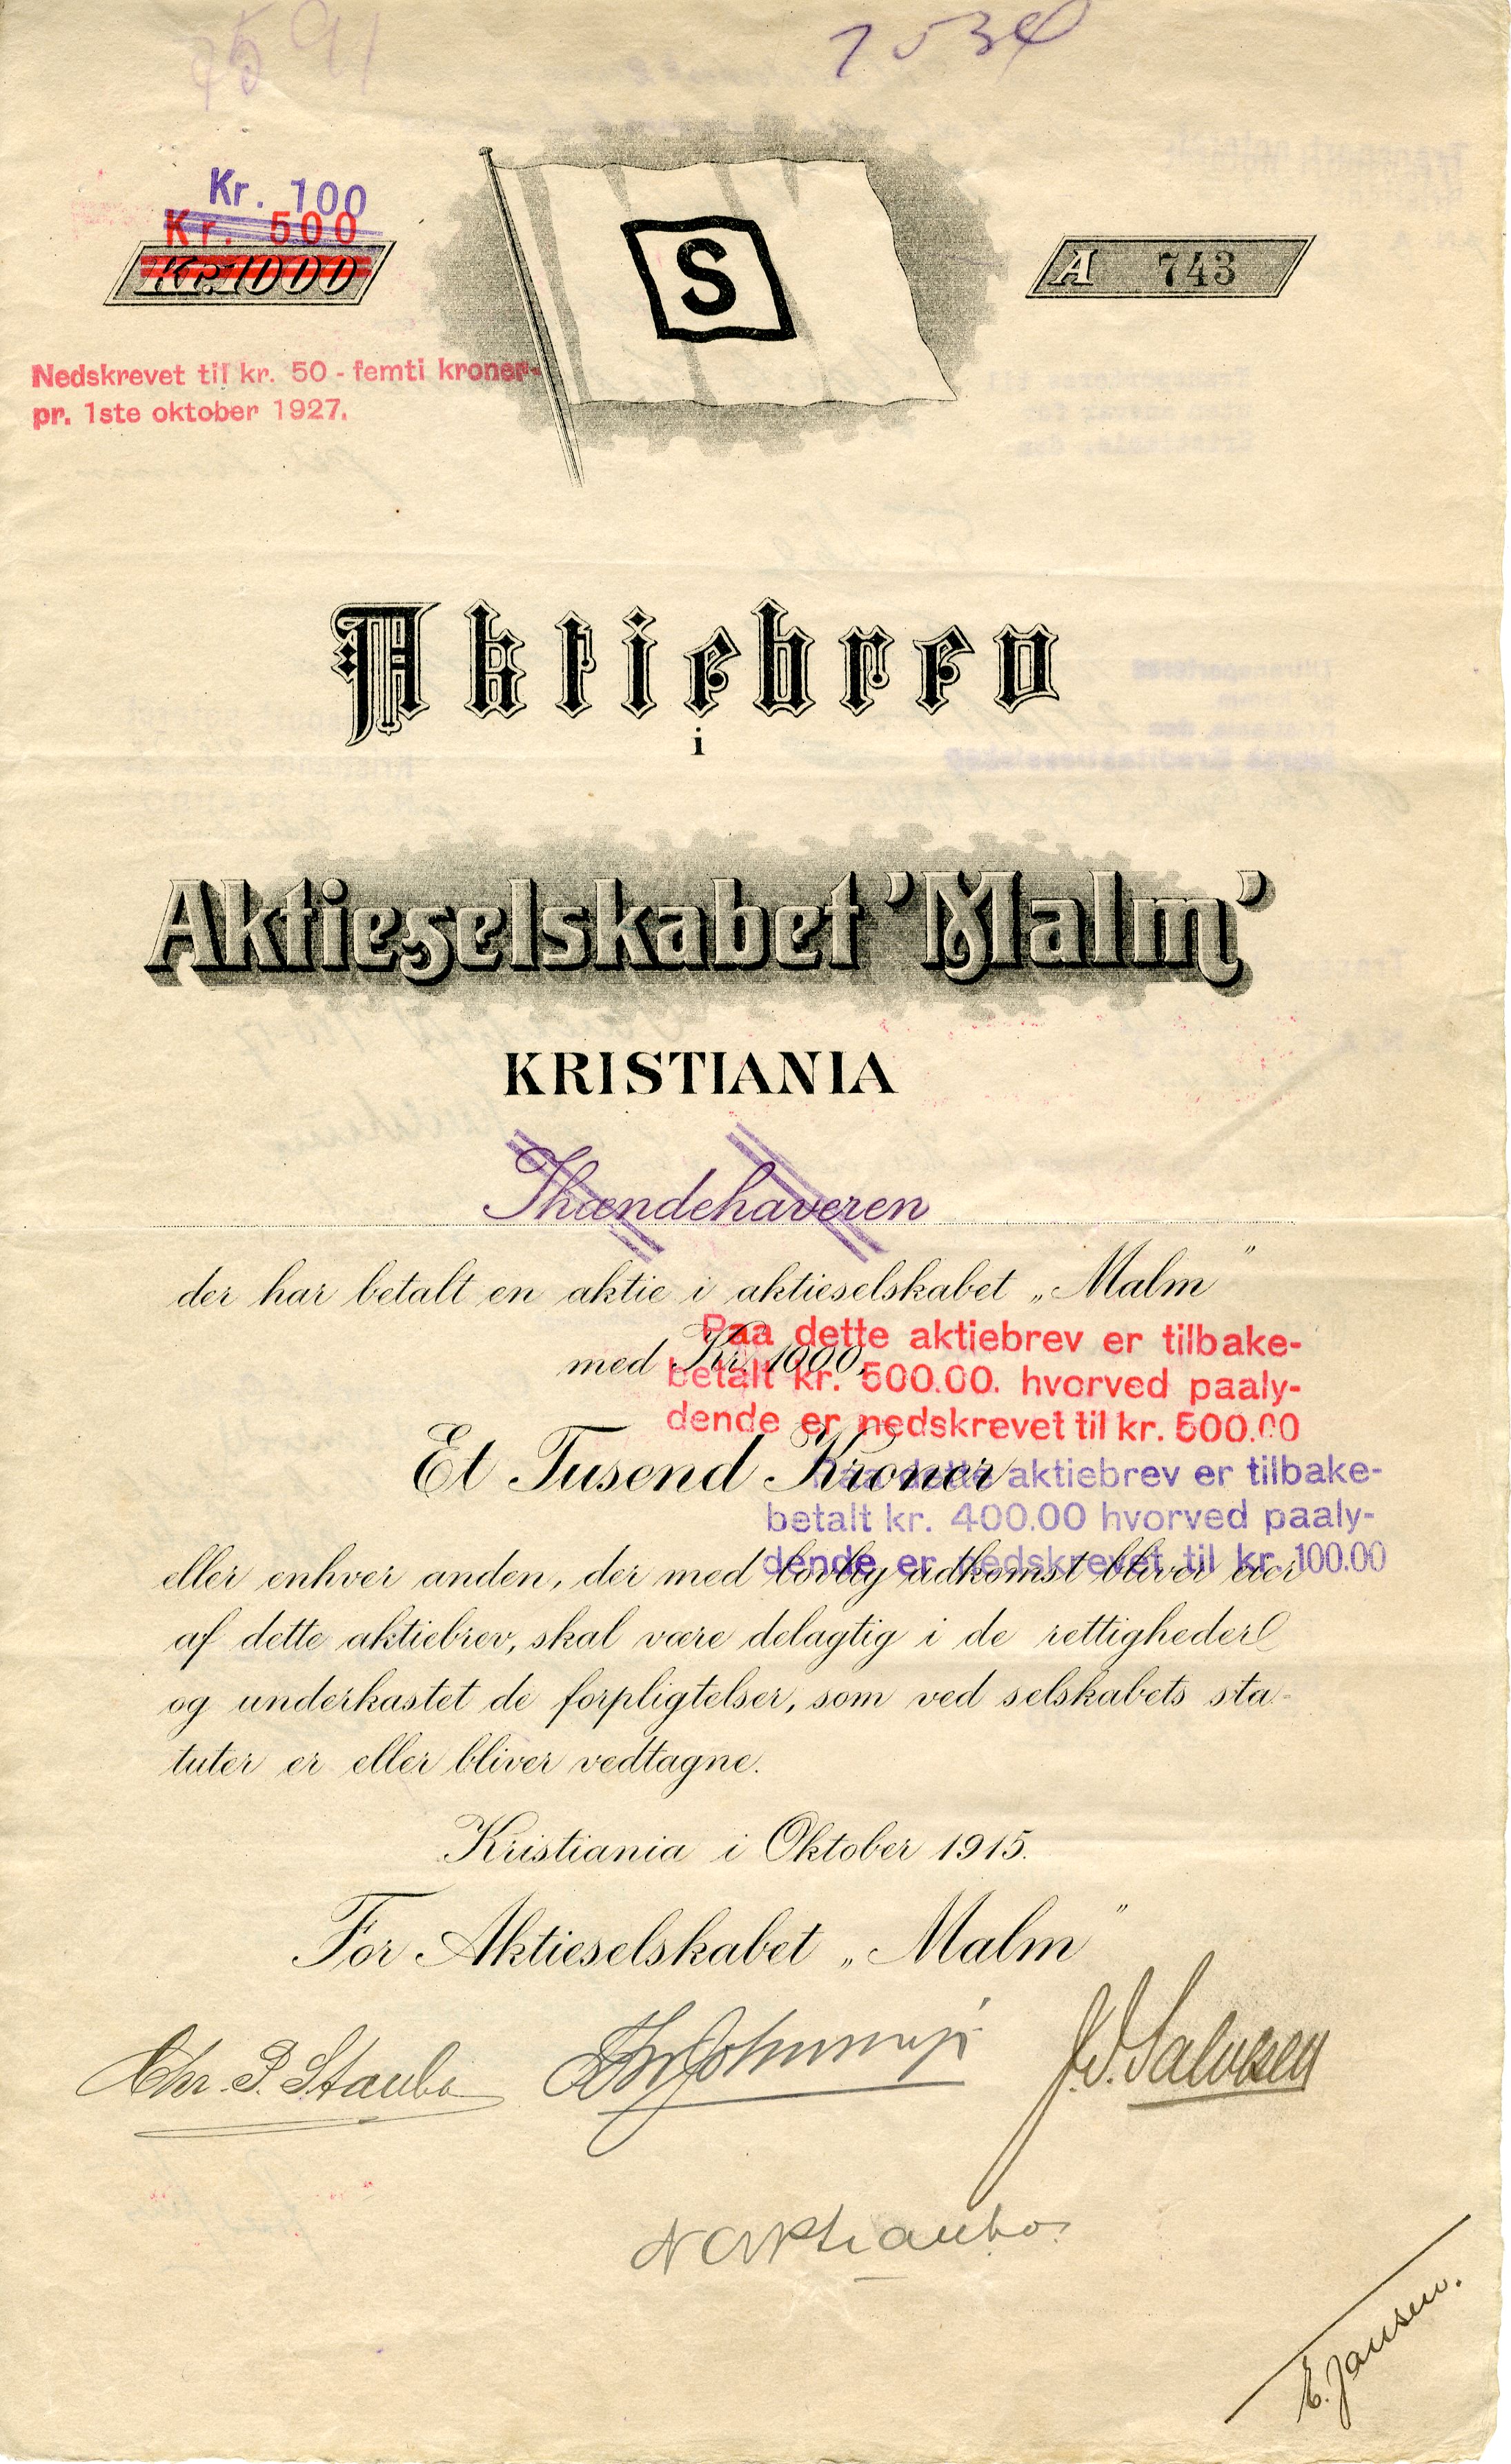 7534
Kr. 100
Kr. 500
Kr. 1000
S
A 743
Nedskrevet til kr. 50 - femti kroner-
pr. 1ste oktober 1927.
Aktiebrev
i
Aktieselskabet 'Malm'
KRISTIANIA
Ihændehaveren
der har betalt en aktie i aktieselskabet „Malm”
med Kr. 1000,
Paa dette aktiebrev er tilbake-
betalt kr. 500.00. hvorved paaly-
dende er nedskrevet til kr. 500.00
Et Tusend Kroner
Paa dette aktiebrev er tilbake-
betalt kr. 400.00 hvorved paaly-
dende er nedskrevet til kr. 100.00
eller enhver anden, der med lovlig adkomst bliver eier
af dette aktiebrev, skal være delagtig i de rettigheder
og underkastet de forpligtelser, som ved selskabets sta-
tuter er eller bliver vedtagne.
Kristiania i Oktober 1915.
For Aktieselskabet „Malm”
Chr. P. Staubo
J. S. Salvesen
E. Jansen.